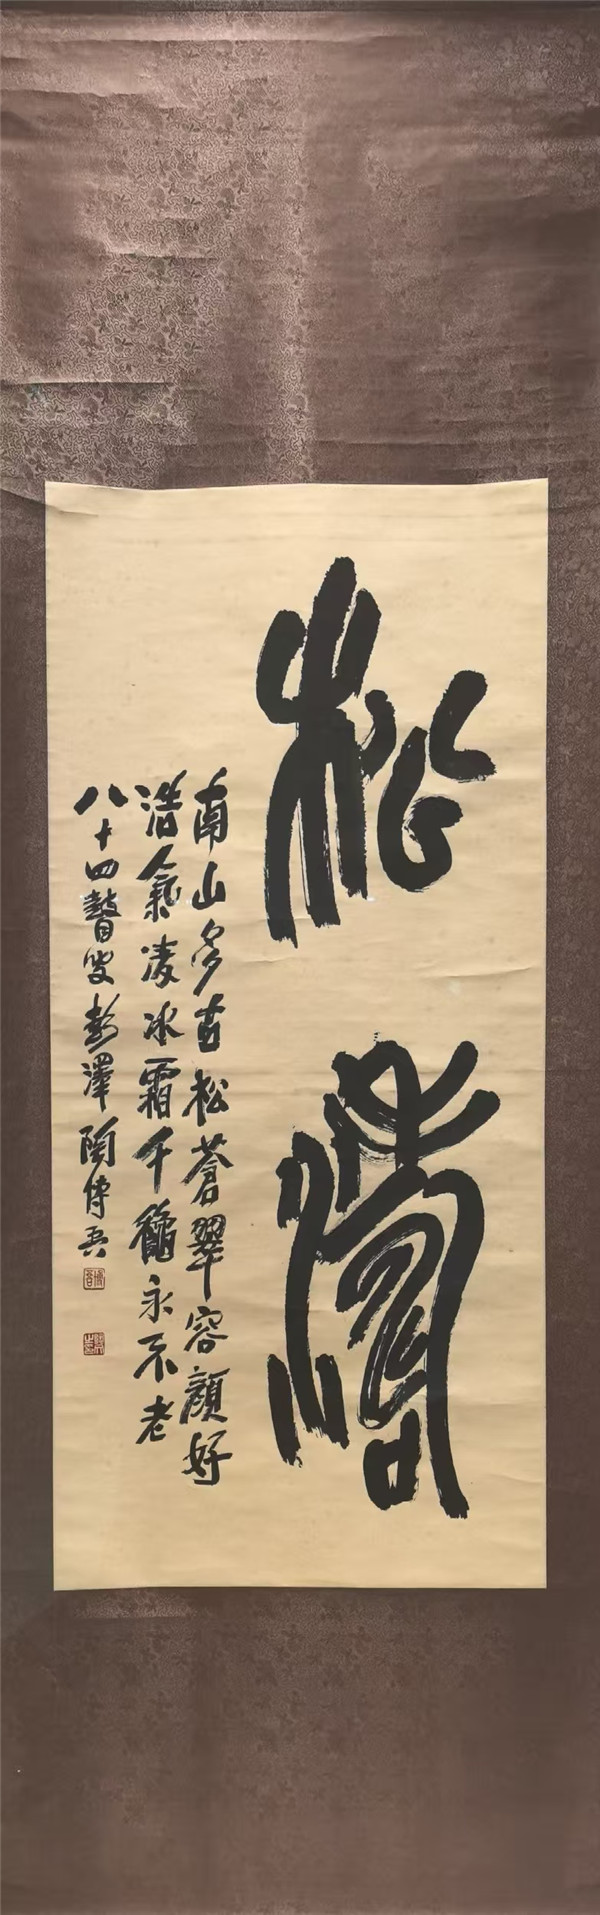 松壽
南山多古松蒼翠容顏好
浩氣凌冰霜千龝永不老
八十四瞽叟彭澤陶博吾